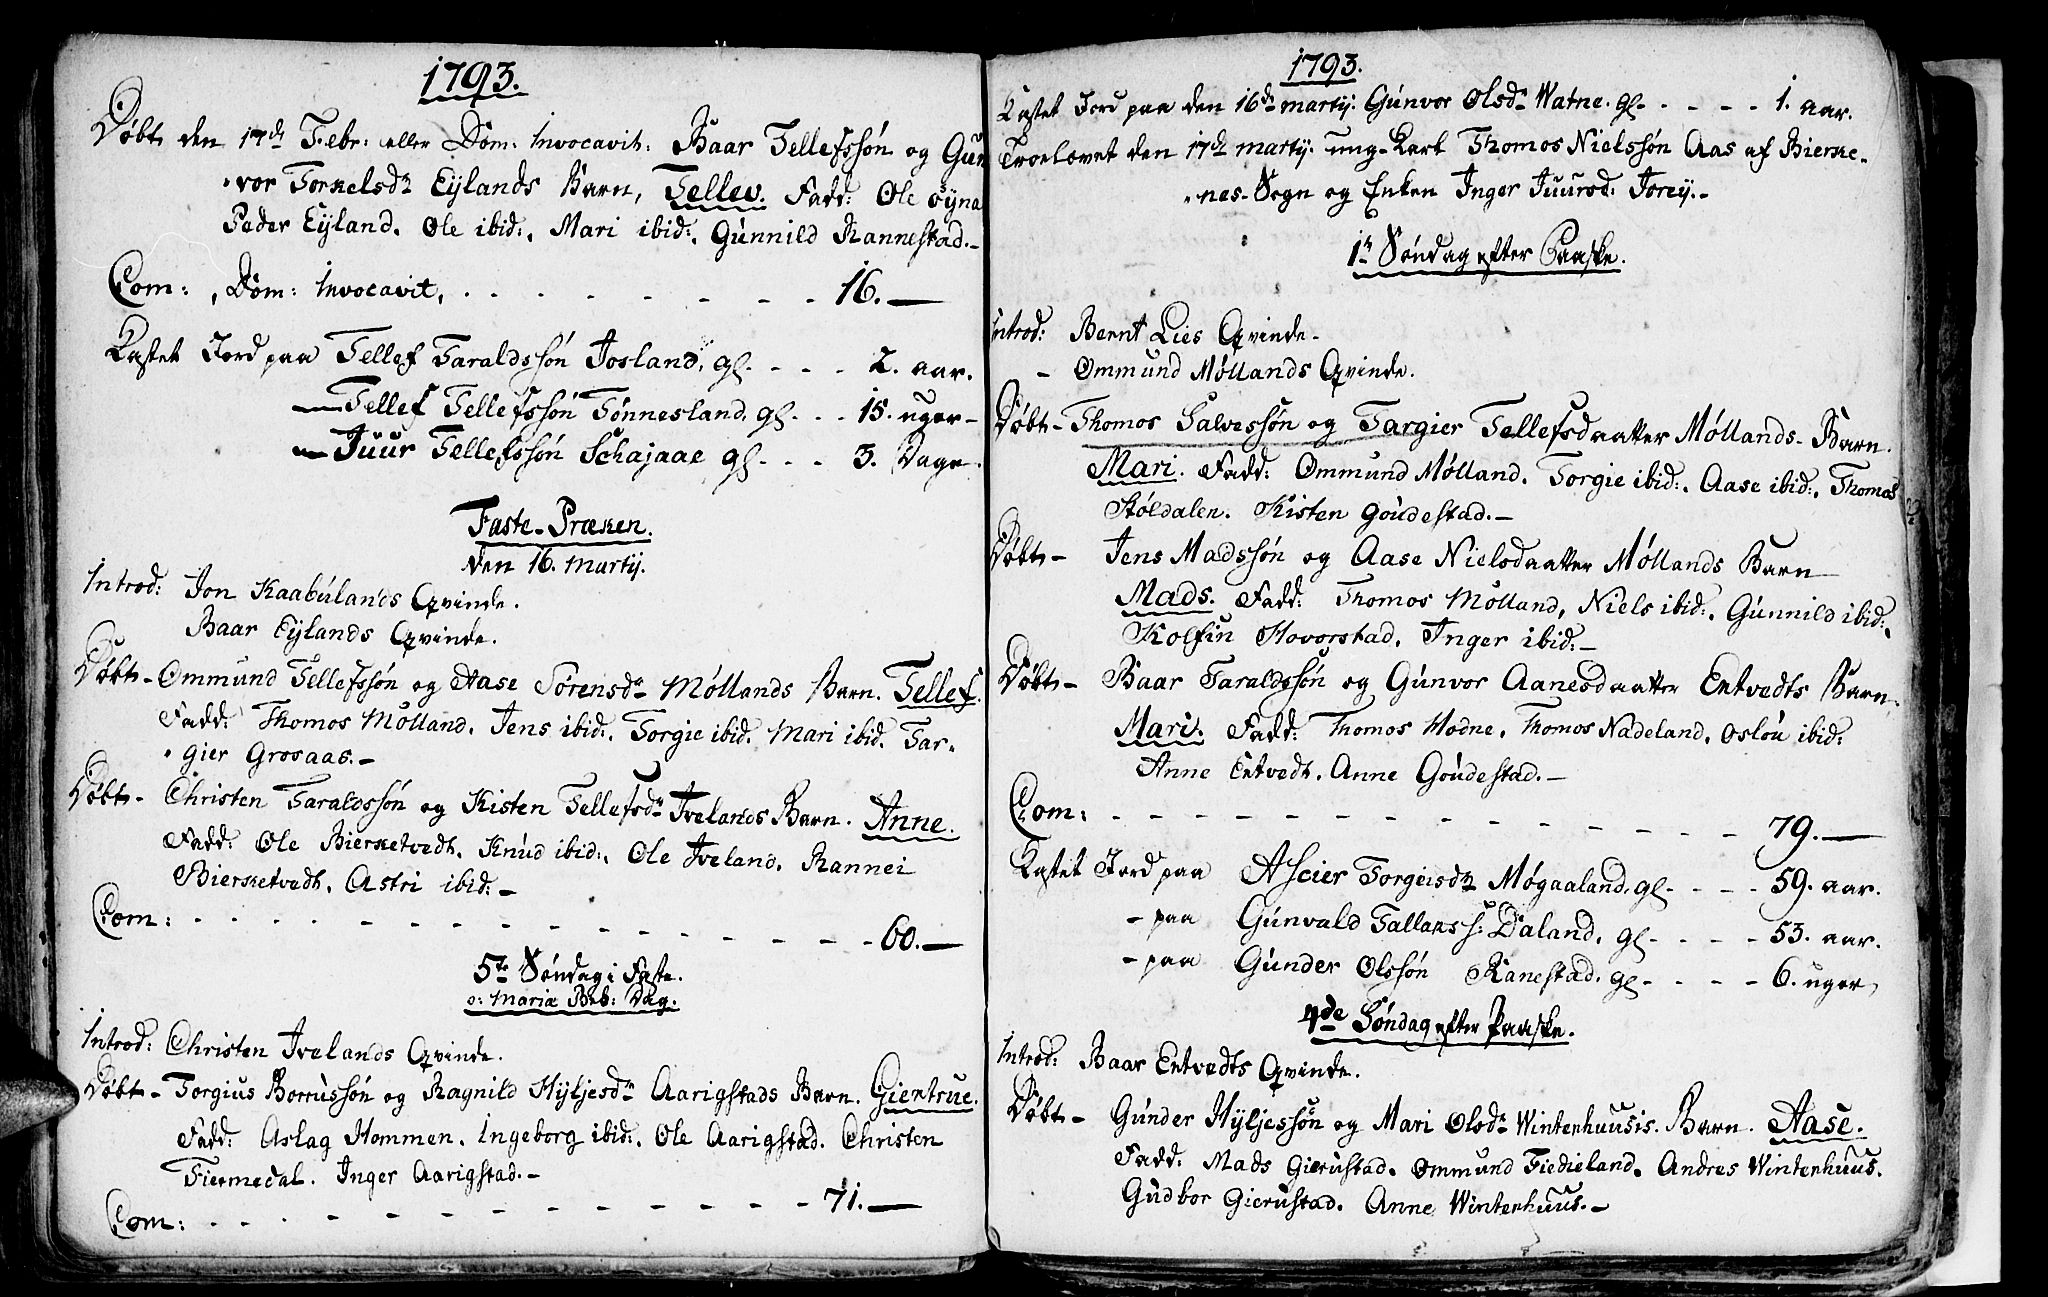 1793.
Døbt den 17de Febr: eller Dom: Invocavit: Baar Tellefssøn og Gun
vor Torkelsdr Eylands Barn, Tellev. Fadd: Ole øyna
Peder Eyland. Ole ibid:. Mari ibid:. Gunnild Rannestad.-
Com: , Dom: Invocavit, . . . - - - - - - 16.—
Kastet Jord paa Tellef Taraldssøn Josland, gl. - - - 2. aar.
— Tellef Tellefssøn Tønnesland, gl - - - 15. uger-
— Juur Tellefssøn Schajaae gl - - - 3. Dage.
Faste-Præken.
den 16. Martij.
Introd: Jon Kaabulands Qvinde.
Baar Eylands Qvinde.
Døbt- Ommund Tellefssøn og Aase Sørensdr Møllands Barn. Tellef.
Fadd: Thomos Mølland. Jens ibid:. Torgie ibid. Mari ibid. Tar-
gier Grosaas.-
Døbt- Christen Taraldssøn og Kisten Tellefsdr Ivelands Barn. Anne.
Fadd: Ole Bierketvedt. Knud ibid:. Ole Iveland. Rannei
Bierketvedt. Astri ibid:-
Com: - - - - - - - - - - - 60.—
5te Søndag i Faste.
o: Mariæ Beb: Dag.
Introd: Christen Ivelands Qvinde.
Døbt- Torgius Borrussøn og Ragnild Hyljesdr Aarigstads Barn. Giertrue.
Fadd: Aslag Hommen. Ingeborg ibid:. Ole Aarigstad. Christen
Fiermedal. Inger Aarigstad.-
Com: . . . - - - - - - - - 71.—
1793.
Kastet Jord paa den 16de martij: Gunvor Olsdr Watne. gl- - - - - 1. aar.
Troelovet den 17de martij: ung-Karl Thomos Nielssøn Aas af Bierke-
nes-Sogn og Enken Inger Juursd: Torey.-
1te Søndag efter Paaske.
Introd: Bernt Lies Qvinde-
- Ommund Møllands Qvinde.
Døbt- Thomos Salvessøn og Targier Tellefsdaatter Møllands- Barn.
Mari. Fadd: Ommund Mølland. Torgie ibid:. Aase ibid:. Thomos
Støldalen. Kisten Goudestad.-
Døbt- Jens Madssøn og Aase Nielsdaatter Møllands Barn
Mads. Fadd: Thomos Mølland, Niels ibid:. Gunnild ibid:.
Kolfin Hovorstad. Inger ibid:-
Døbt- Baar Taraldssøn og Gunvor Aanesdaatter Entvedts Barn.
Mari. Fadd: Thomos Hodne. Thomos Nadeland. Oslou ibid:
Anne Entvedt. Anne Goudestad.-
Com: - - - - - - - - - - - 79.—
Kastet Jord paa Ascier Torgeisdr Møgaaland. gl- - - - 59. aar.
- paa Gunvald Tallaks s: Daland. gl- - - - 53. aar.
- paa Gunder Olssøn Ranestad. gl- - - - 6. uger,
4de Søndag efter Paaske.
Introd: Baar Entvedts Qvinde.
Døbt- Gunder Hyljessøn og Mari Olsdr Winterhuusis. Barn. Aase.
Fadd: Mads Gierustad. Ommund Fiedieland. Andres Winterhuus.
Gudbor Gierustad. Anne Winterhuus.-